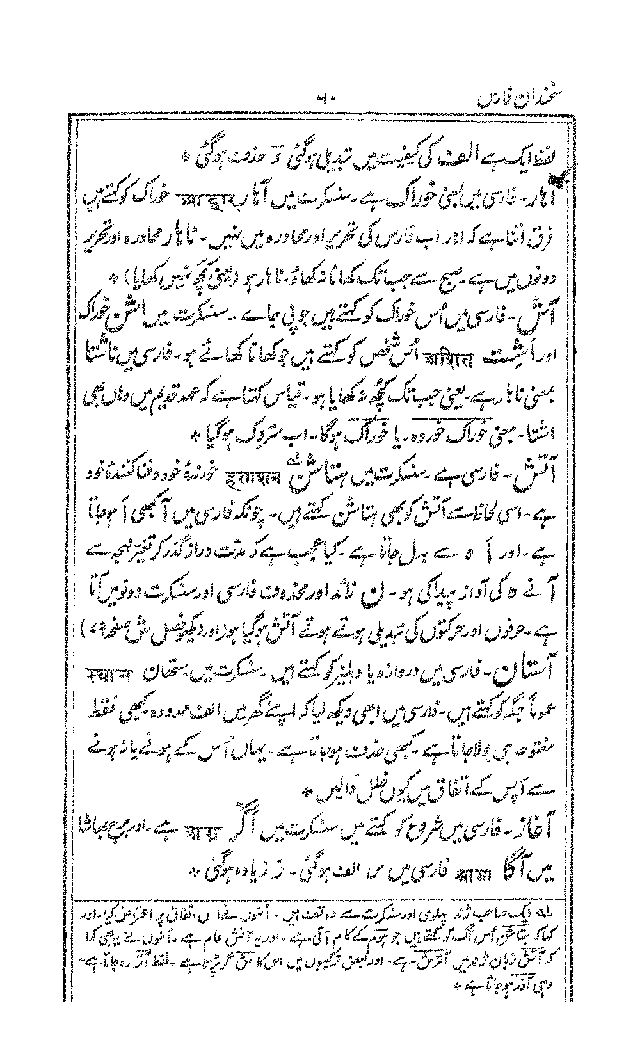 سخندان فارس
۶۰
لفظ ایک ہے الف کی کیفیت میں تبدیل ہو گئی آ حذف ہو گئی *
آہار۔ فارسی میں بمعنی خوراک ہے۔ سنسکرت میں آہار आहार خوراک کو کہتے ہیں
فرق اتنا ہے کہ اور اب فارس کی تحریر اور محاورہ میں نہیں۔ ناہار محاورہ اور تحریر
دونوں میں ہے۔ صبح سے جب تک کھانا نہ کھاؤ۔ ناہار ہو (یعنی کچھ نہیں کھایا) *
آش۔ فارسی میں اُس خوراک کو کہتے ہیں جو پی جائے۔ سنسکرت میں اشن خوراک
اور اشت अशित اُس شخص کو کہتے ہیں جو کھانا کھائے ہو۔ فارسی میں ناشتا
بمعنی ناہار ہے۔ یعنی جب تک کچھ نہ کھایا ہو۔ قیاس کہتا ہے کہ عہد قدیم میں وہاں بھی
اشتا۔ بمعنی خوراک خوردہ۔ یا خوراک ہوگا۔ اب متروک ہو گیا *
آتش۔ فارسی ہے۔ سنسکرت میں ہتاشن हुताशन خورندۂ خود و فنا کنندۂ خود
ہے۔ اسی لحاظ سے آتش کو بھی ہتاشن کہتے ہیں۔ چونکہ فارسی میں آ کبھی اَ ہو جاتا
ہے۔ اور اَ ہ سے بدل جاتا ہے۔ کیا عجب ہے کہ مدت دراز گذر کر تغیر لہجہ سے
آ نے ہ کی آواز پیدا کی ہو۔ ن زائد اور محذوف فارسی اور سنسکرت دونو میں آتا
ہے۔ حرفوں اور حرکتوں کی تبدیلی ہوتے ہوتے آتش ہو گیا ہو (اور دیکھو فصل ش صفحہ ۷۹)
آستان۔ فارسی میں دروازہ یا دہلیز کو کہتے ہیں۔ سنسکرت میں ستھان स्थान
عموماً جگہ کو کہتے ہیں۔ فارسی میں ابھی دیکھ لیا کہ اپنے گھر میں الف ممدودہ کبھی فقط
مفتوحہ ہی بولا جاتا ہے۔ کبھی حذف ہو جاتا ہے۔ یہاں اُس کے ہونے یا نہ ہونے
سے آپس کے اتفاق میں کیوں خلل ڈالیں *
آغاز۔ فارسی میں شروع کو کہتے ہیں سنسکرت میں آگر ہے۔ اور مرج بھاشا
میں آگا فارسی میں الف ہو گئی۔ ز زیادہ ہو گئی *
لہ ایک صاحب ژند پہلوی اور سنسکرت سے واقف ہیں۔ اُنہوں نے اتفاق پر اعتراض کیا۔ اور
کہا کہ ہتاشن اُس آگ کو کہتے ہیں جو ہوم کے کام آتی ہے۔ اور یہ آتش عام ہے۔